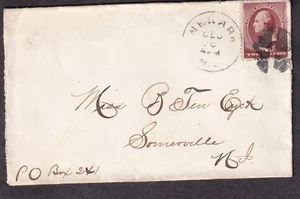 NEWARK
DEC
4 PM
N.J.
TWO CENTS
Miss B Ten Eyck
Somerville
N.J.
PO Box 241